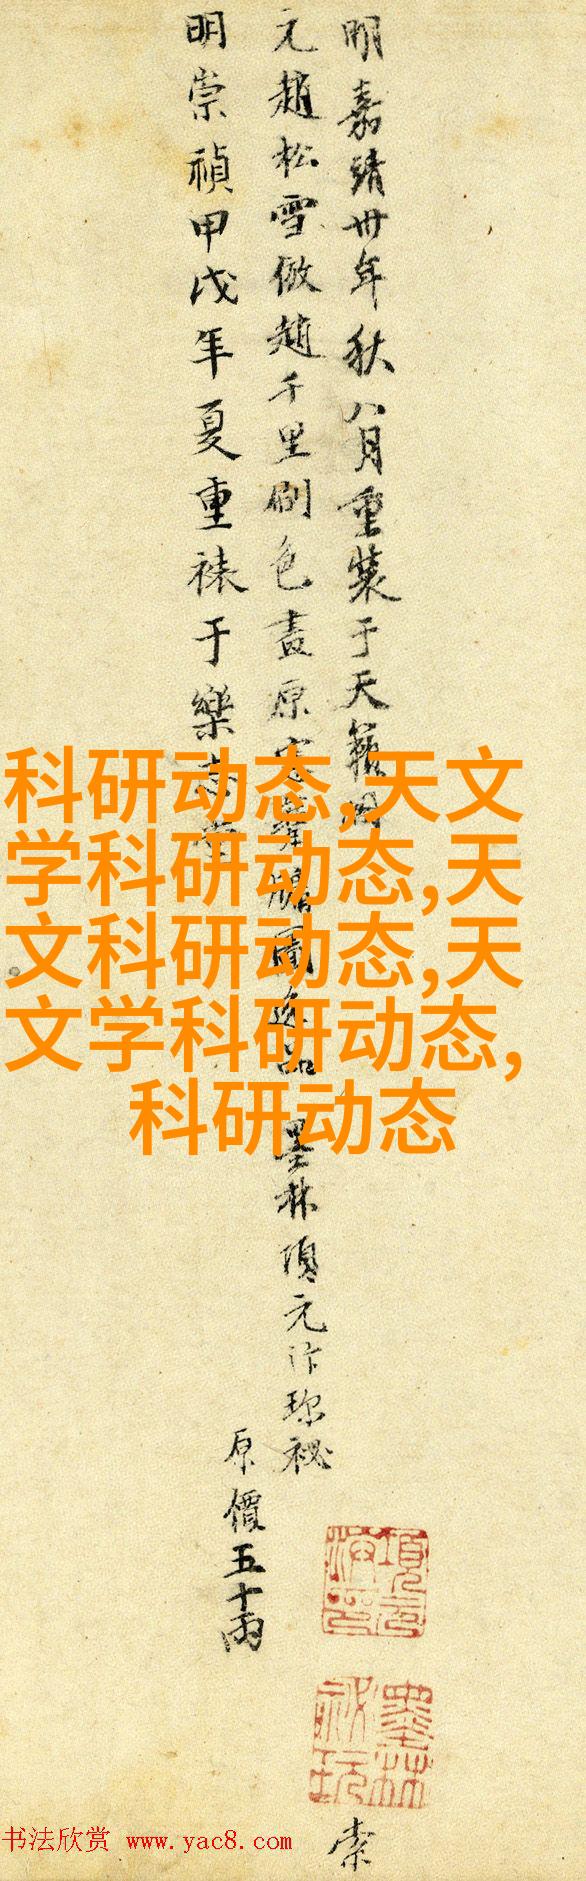 明嘉靖卅年秋八月重装于天籟閣
元趙松雪倣趙千里刷色畫
原價五十兩
明崇禎甲戊年夏重裱于樂志堂
墨林項元汴珍秘
科研动态,天文
学科研动态,天
文科研动态,天
文学科研动态,
科研动态
墨林
书法欣赏 www.yac8.com